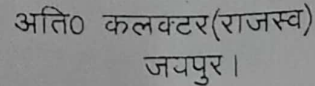 अति० कलक्टर(राजस्व)
जयपुर।